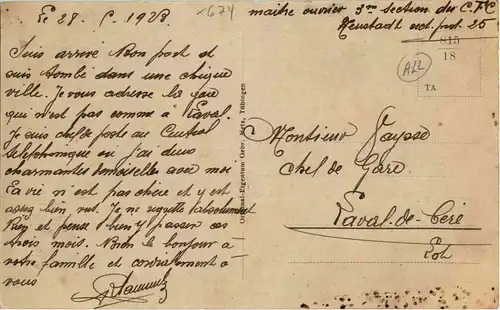 Le 28. 6. 1928
x674
maitre ouvrier 3me section du C.F.C
Neustadt sect. post. 25
815
18
ALL
TA
Suis arrivé bon port et
suis tombé dans une chique
ville. Je vous adresse la gare
qui n'est pas comme à Laval.
Je suis chef de poste au Central
telephonique où j'ai deux
charmantes demoiselles avec moi
La vie n'est pas chère et y est
assez bien vus. Je ne regrette absolument
Rien et pense bien y passer ces
trois mois. Bien le bonjour à
votre famille et cordialement à
vous
Original-Eigentum Gebr. Metz, Tübingen
Monsieur Vaysse
Chef de Gare
Laval-de-Cère
Lot